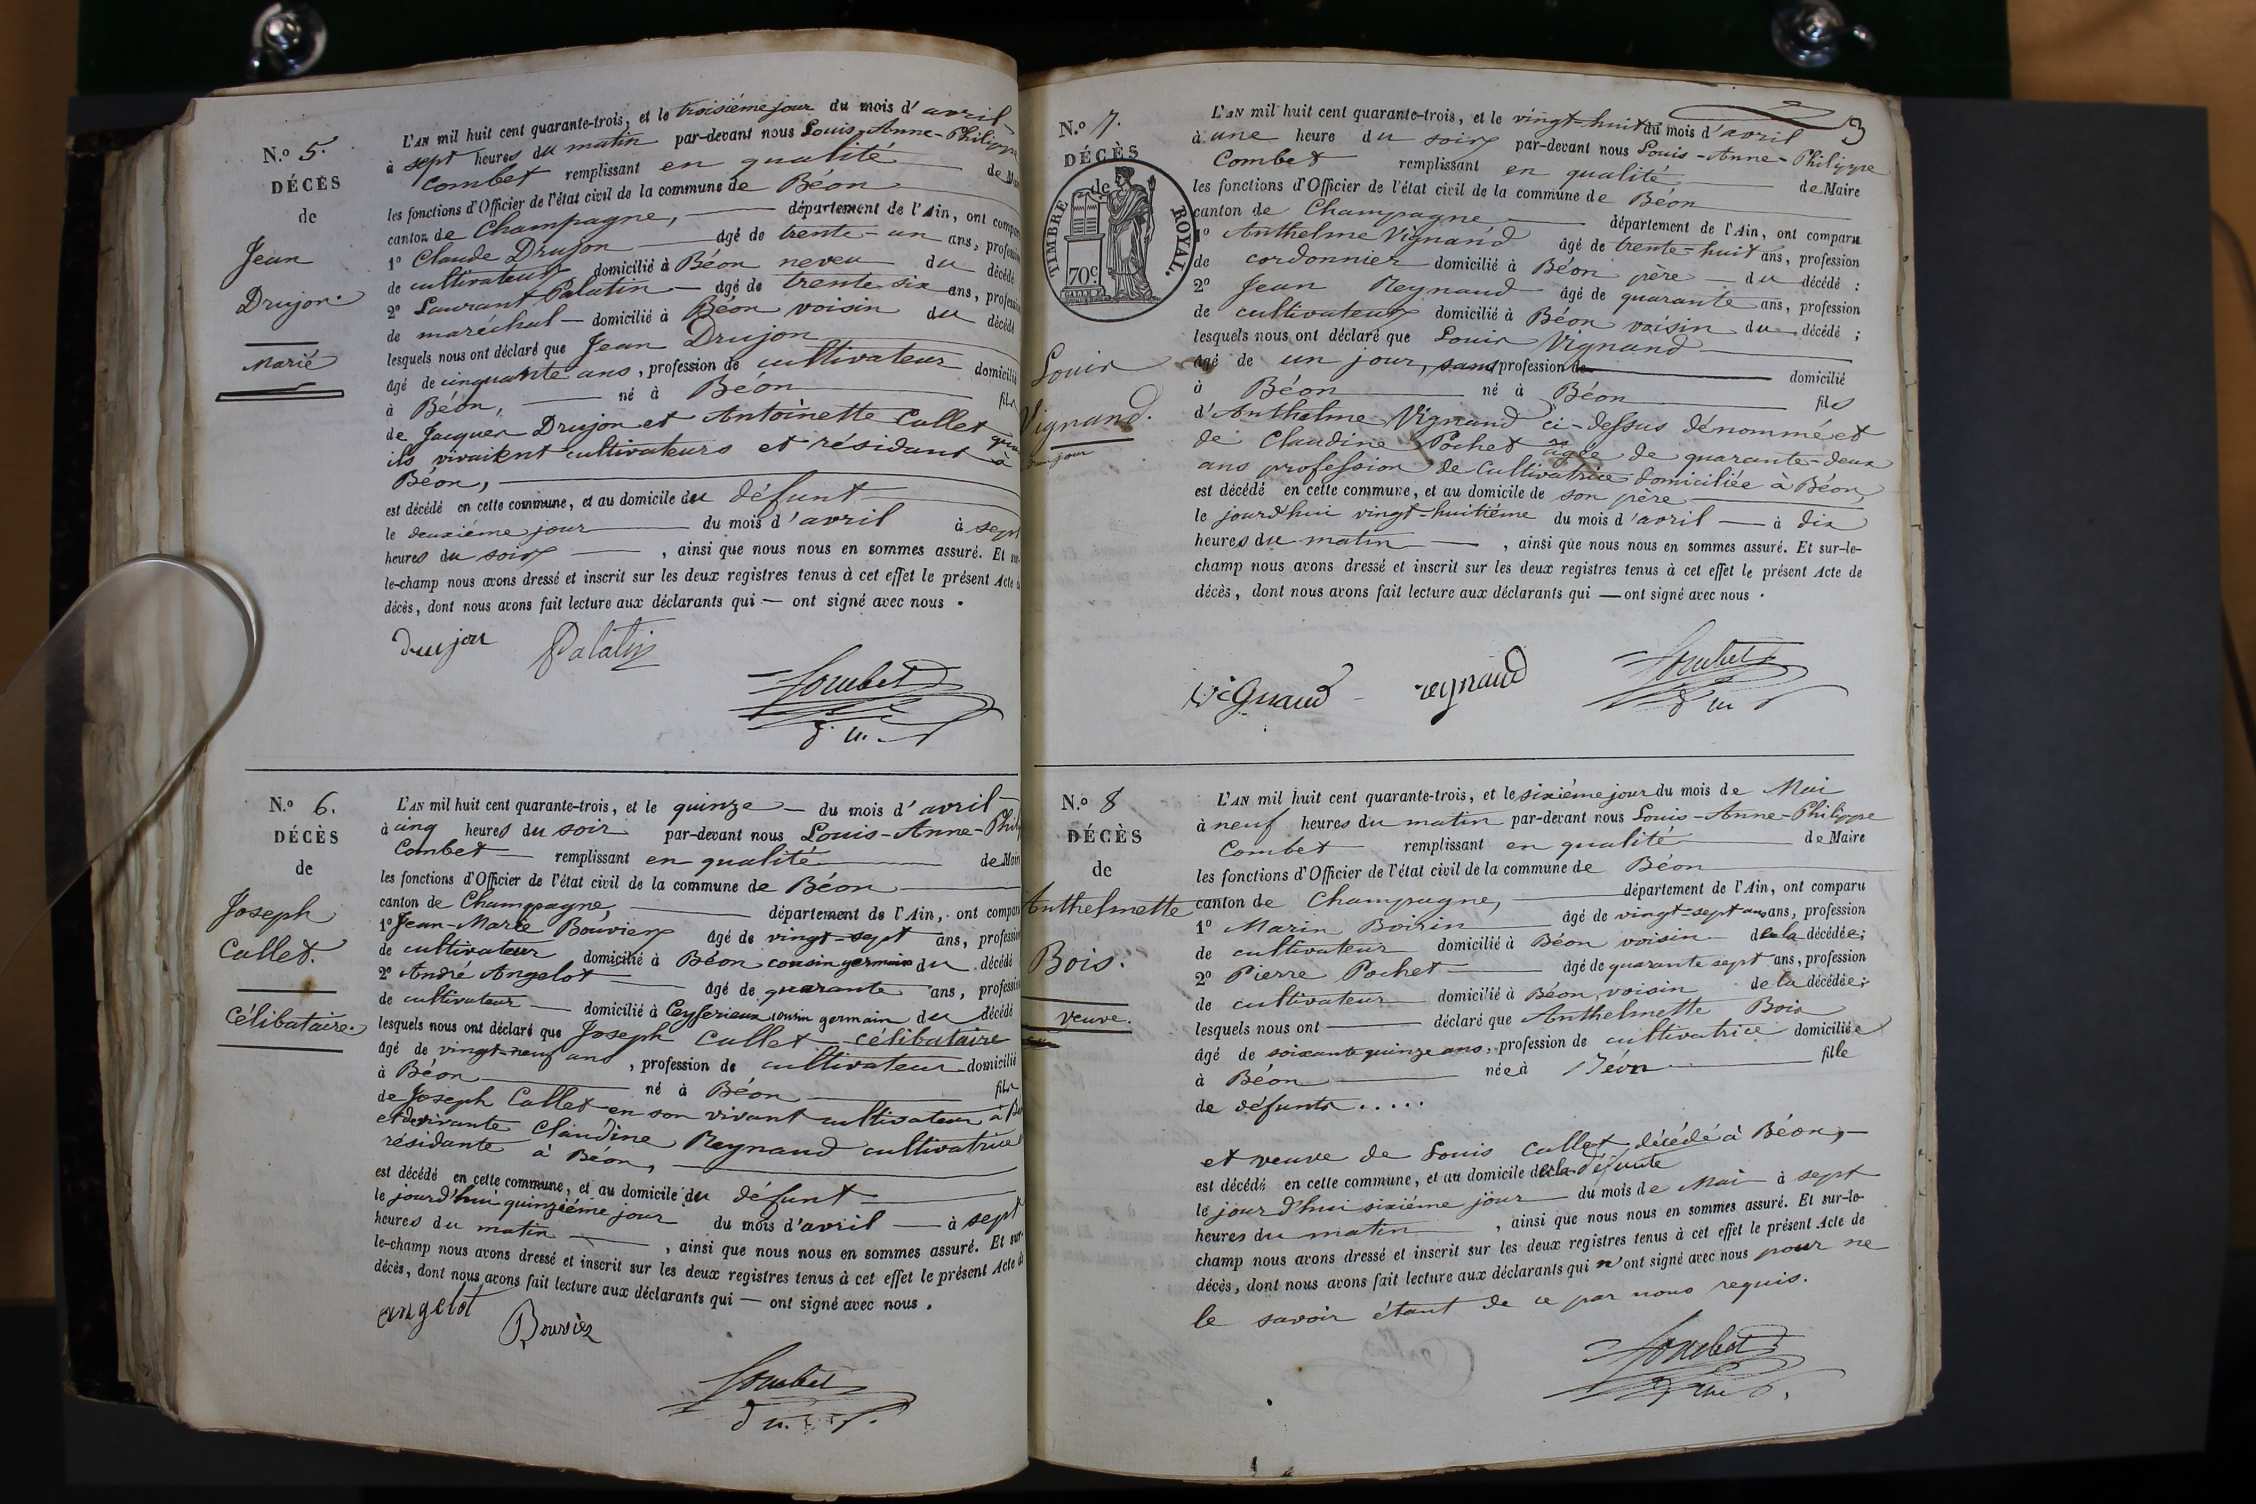 N.º 5.
DÉCÈS
de
Jean
Drujon.
Marié
L'AN mil huit cent quarante-trois, et le troisiéme jour du mois d'avril
à sept heures du matin par-devant nous Louis-Anne-Philippe
Combet remplissant en qualité de
les fonctions d'Officier de l'état civil de la commune de Béon
canton de Champagne, département de l'Ain, ont
1º Claude Drujon âgé de trente-un ans,
de cultivateur domicilié à Béon neveu du décédé
2º Laurant Palatin âgé de trente six ans,
de maréchal domicilié à Béon voisin du décédé
lesquels nous ont déclaré que Jean Drujon
âgé de cinquante ans, profession de cultivateur domicilié
à Béon, né à Béon fils
de Jacques Drujon et Antoinette Callet
ils vivaient cultivateurs et résidant à
Béon,
est décédé en cette commune, et au domicile du défunt
le deuxiéme jour du mois d'avril à sept
heures du soir, ainsi que nous nous en sommes assuré. Et
le-champ nous avons dressé et inscrit sur les deux registres tenus à cet effet le présent Acte
décès, dont nous avons fait lecture aux déclarants qui — ont signé avec nous.
drujon Palatin
Combet
N.º 6.
DÉCÈS
de
Joseph
Callet.
Célibataire.
L'AN mil huit cent quarante-trois, et le quinze du mois d'avril
à cinq heures du soir par-devant nous Louis-Anne-
Combet remplissant en qualité de
les fonctions d'Officier de l'état civil de la commune de Béon
canton de Champagne, département de l'Ain, ont
1º Jean-Marie Bouvier âgé de vingt-sept ans,
de cultivateur domicilié à Béon cousin germain du décédé
2º André Angelot âgé de quarante ans,
de cultivateur domicilié à Ceyserieux cousin germain du décédé
lesquels nous ont déclaré que Joseph Callet célibataire
âgé de vingt-neuf ans, profession de cultivateur domicilié
à Béon né à Béon fils
de Joseph Callet en son vivant cultivateur à
et de vivante Claudine Reynaud cultivatrice
résidante à Béon,
est décédé en cette commune, et au domicile du défunt
le jourd'hui quinziéme jour du mois d'avril à sept
heures du matin, ainsi que nous nous en sommes assuré. Et sur-
le-champ nous avons dressé et inscrit sur les deux registres tenus à cet effet le présent Acte
décès, dont nous avons fait lecture aux déclarants qui — ont signé avec nous.
angelot Bouvier
Combet
3
N.º 7.
DÉCÈS
de
TIMBRE ROYAL.
70c.
Louis
Vignand.
L'AN mil huit cent quarante-trois, et le vingt-huit du mois d'avril
à une heure du soir par-devant nous Louis-Anne-Philippe
Combet remplissant en qualité de Maire
les fonctions d'Officier de l'état civil de la commune de Béon
canton de Champagne département de l'Ain, ont comparu
1º Anthelme Vignand âgé de trente-huit ans, profession
de cordonnier domicilié à Béon père du décédé;
2º Jean Reynaud âgé de quarante ans, profession
de cultivateur domicilié à Béon voisin du décédé;
lesquels nous ont déclaré que Louis Vignand
âgé de un jour, sans profession de domicilié
à Béon né à Béon fils
d'Anthelme Vignand ci-dessus dénommé et
de Claudine Pochet agée de quarante-deux
ans profession de cultivatrice domiciliée à Béon,
est décédé en cette commune, et au domicile de son père
le jourd'hui vingt-huitiéme du mois d'avril à dix
heures du matin, ainsi que nous nous en sommes assuré. Et sur-le-
champ nous avons dressé et inscrit sur les deux registres tenus à cet effet le présent Acte de
décès, dont nous avons fait lecture aux déclarants qui — ont signé avec nous.
Vignaud reynaud Combet
N.º 8
DÉCÈS
de
Anthelmette
Bois.
veuve.
L'AN mil huit cent quarante-trois, et le sixiéme jour du mois de Mai
à neuf heures du matin par-devant nous Louis-Anne-Philippe
Combet remplissant en qualité de Maire
les fonctions d'Officier de l'état civil de la commune de Béon
canton de Champagne, département de l'Ain, ont comparu
1º Marin Boirin âgé de vingt-sept ans ans, profession
de cultivateur domicilié à Béon voisin de la décédée;
2º Pierre Pochet âgé de quarante sept ans, profession
de cultivateur domicilié à Béon, voisin de la décédée;
lesquels nous ont déclaré que Anthelmette Bois
âgé de soixante quinze ans, profession de cultivatrice domiciliée
à Béon née à Béon fille
de défunts.....
et veuve de Louis Callet décédé à Béon,
est décédé en cette commune, et au domicile de la défunte
le jourd'hui sixiéme jour du mois de Mai à sept
heures du matin, ainsi que nous nous en sommes assuré. Et sur-le-
champ nous avons dressé et inscrit sur les deux registres tenus à cet effet le présent Acte de
décès, dont nous avons fait lecture aux déclarants qui n'ont signé avec nous pour ne
le savoir étant de ce par nous requis.
Combet